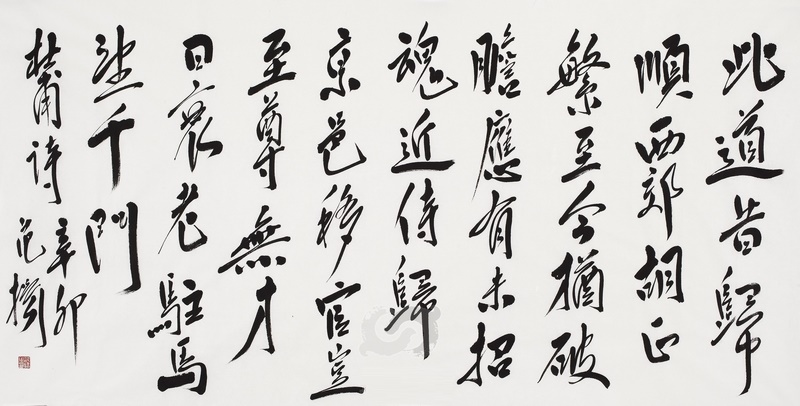 此道昔歸
順西郊胡正
繁至今猶破
膽應有未招
魂近侍歸
京邑移官豈
至尊無才
日衰老駐馬
望千門
杜甫詩
辛卯
范